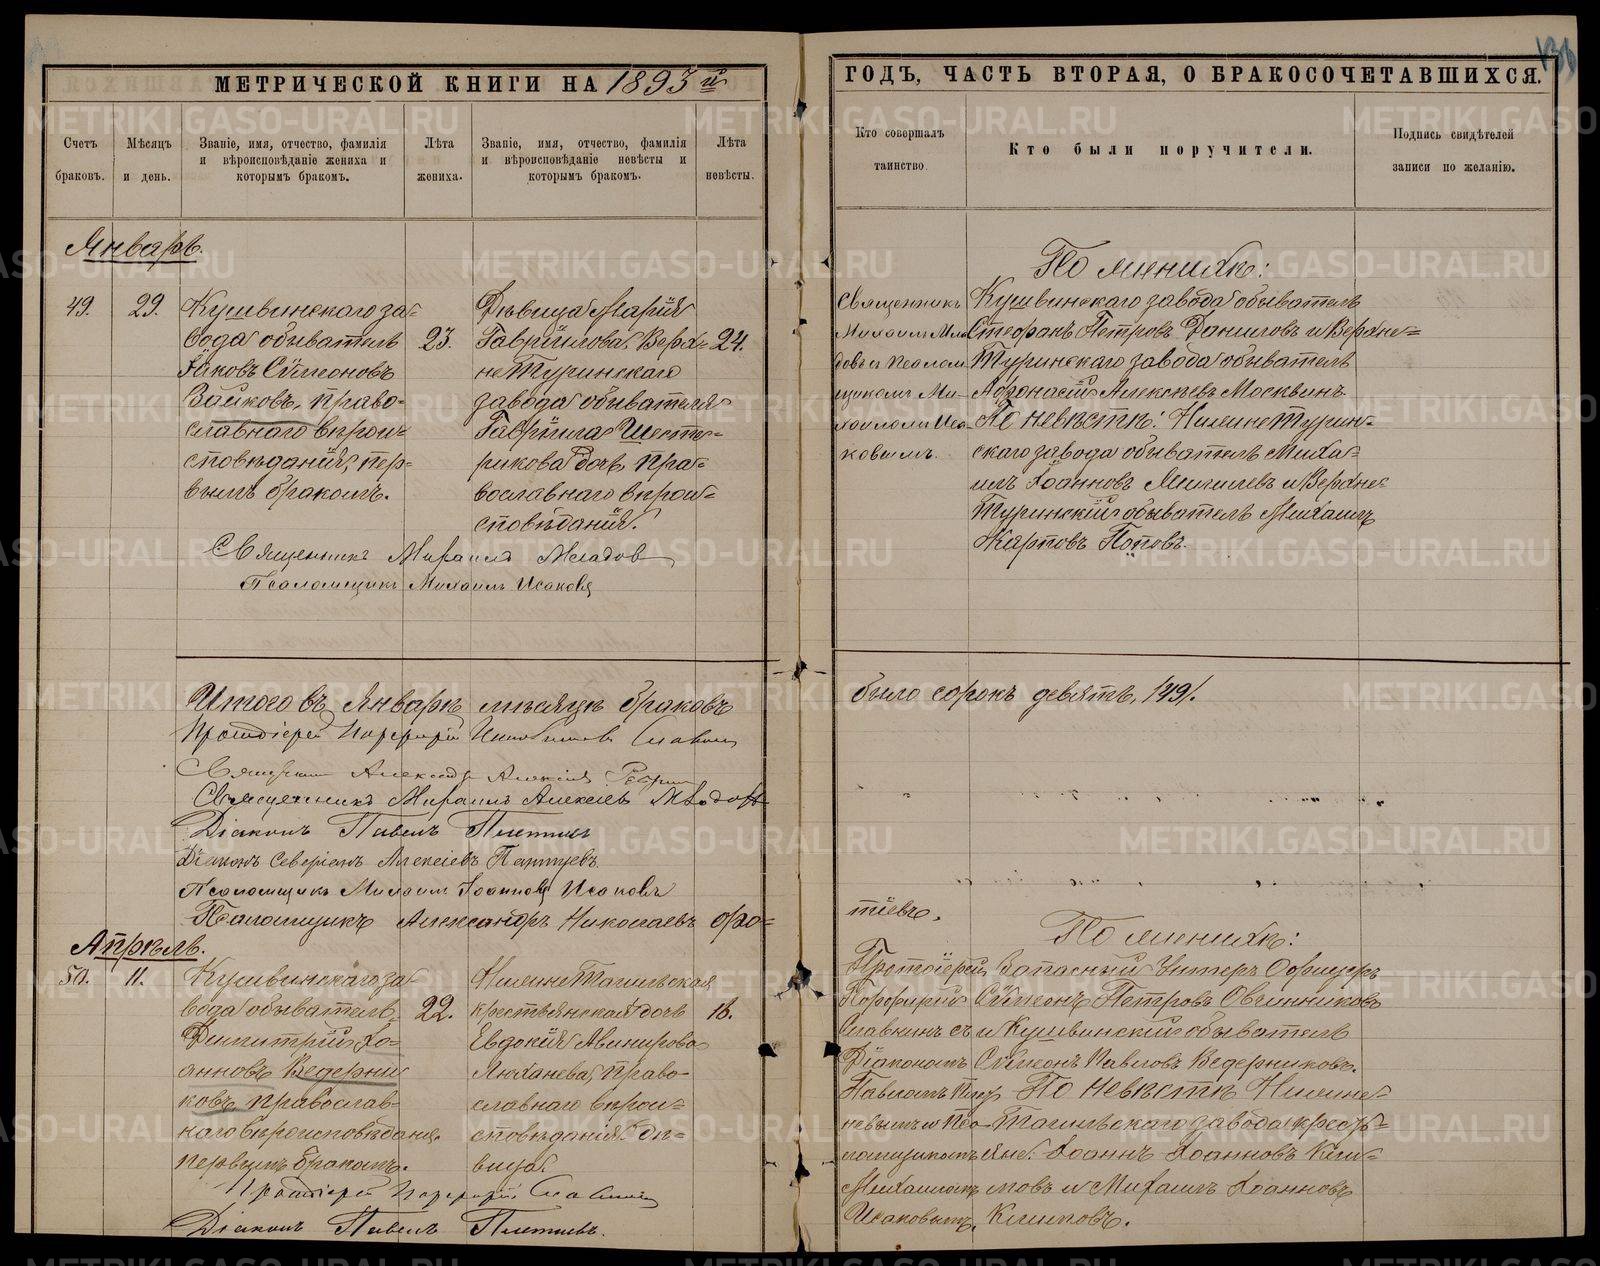 МЕТРИЧЕСКОЙ КНИГИ НА 1893 й
ГОДЪ, ЧАСТЬ ВТОРАЯ, О БРАКОСОЧЕТАВШИХСЯ.
Счетъ браковъ.
Мѣсяцъ и день.
Званіе, имя, отчество, фамилія
и вѣроисповѣданіе жениха и
которымъ бракомъ.
Лѣта жениха.
Званіе, имя, отчество, фамилія
и вѣроисповѣданіе невѣсты и
которымъ бракомъ.
Лѣта невѣсты.
Кто совершалъ таинство.
Кто были поручители.
Подпись свидѣтелей
записи по желанію.
Январь.
49.
29.
Кушвинскаго за-
вода обыватель
Іаковъ Сѵмеоновъ
Войковъ, право-
славнаго вѣрои-
сповѣданія, пер-
вымъ бракомъ.
23.
Дѣвица Марія
Гавріилова, Верх-
не Туринскаго
завода обывателя
Гавріила Шесте-
рикова дочь, пра-
вославнаго вѣрои-
сповѣданія.
24.
Священникъ
Михаилъ Мла-
довъ съ Псалом-
щикомъ Ми-
хаиломъ Иса-
ковымъ.
По женихѣ:
Кушвинскаго завода обыватель
Стефанъ Петровъ Даниловъ и Верхне-
Туринскаго завода обыватель
Афонасій Алексѣевъ Москвинъ.
По невѣстѣ: Нижне Турин-
скаго завода обыватель Миха-
илъ Іоанновъ и Верхне-
Туринскій обыватель Михаилъ
Карповъ Поповъ.
Священникъ Михаилъ Младовъ
Псаломщикъ Михаилъ Исаковъ
Итого въ Январѣ мѣсяцѣ браковъ
было сорокъ девять, /49/.
Протоіерей Порфирій Славнинъ
Священникъ Александръ Алексіевъ
Священникъ Михаилъ Алексіевъ Младовъ
Діаконъ Павелъ
Діаконъ Северіанъ Алексіевъ
Псаломщикъ Михаилъ Іоанновъ Исаковъ
Псаломщикъ Александръ Николаевъ Фо-
тіевъ.
Апрѣль.
50.
11.
Кушвинскаго за-
вода обыватель
Димитрій Іо-
анновъ Ведерни-
ковъ, православ-
наго вѣроисповѣданія,
первымъ бракомъ.
22.
Нижне Тагильская
крестьянская дочь
Евдокія Авенирова
Люханева, право-
славнаго вѣрои-
сповѣданія, дѣ-
вица.
18.
Протоіерей
Порфирій
Славнинъ съ
Діакономъ
Павломъ
и Пса-
ломщикомъ
Михаиломъ
Исаковымъ.
По женихѣ:
Запасный Унтеръ Офицеръ
Сѵмеонъ Петровъ Овчинниковъ
и Кушвинскій обыватель
Сѵмеонъ Павловъ Ведерниковъ.
По невѣстѣ Нижне-
Тагильскаго завода кресть-
яне: Іоаннъ Іоанновъ Кли-
мовъ и Михаилъ Іоанновъ
Протоіерей Порфирій Славнинъ
Діаконъ Павелъ
METRIKI.GASO-URAL.RU